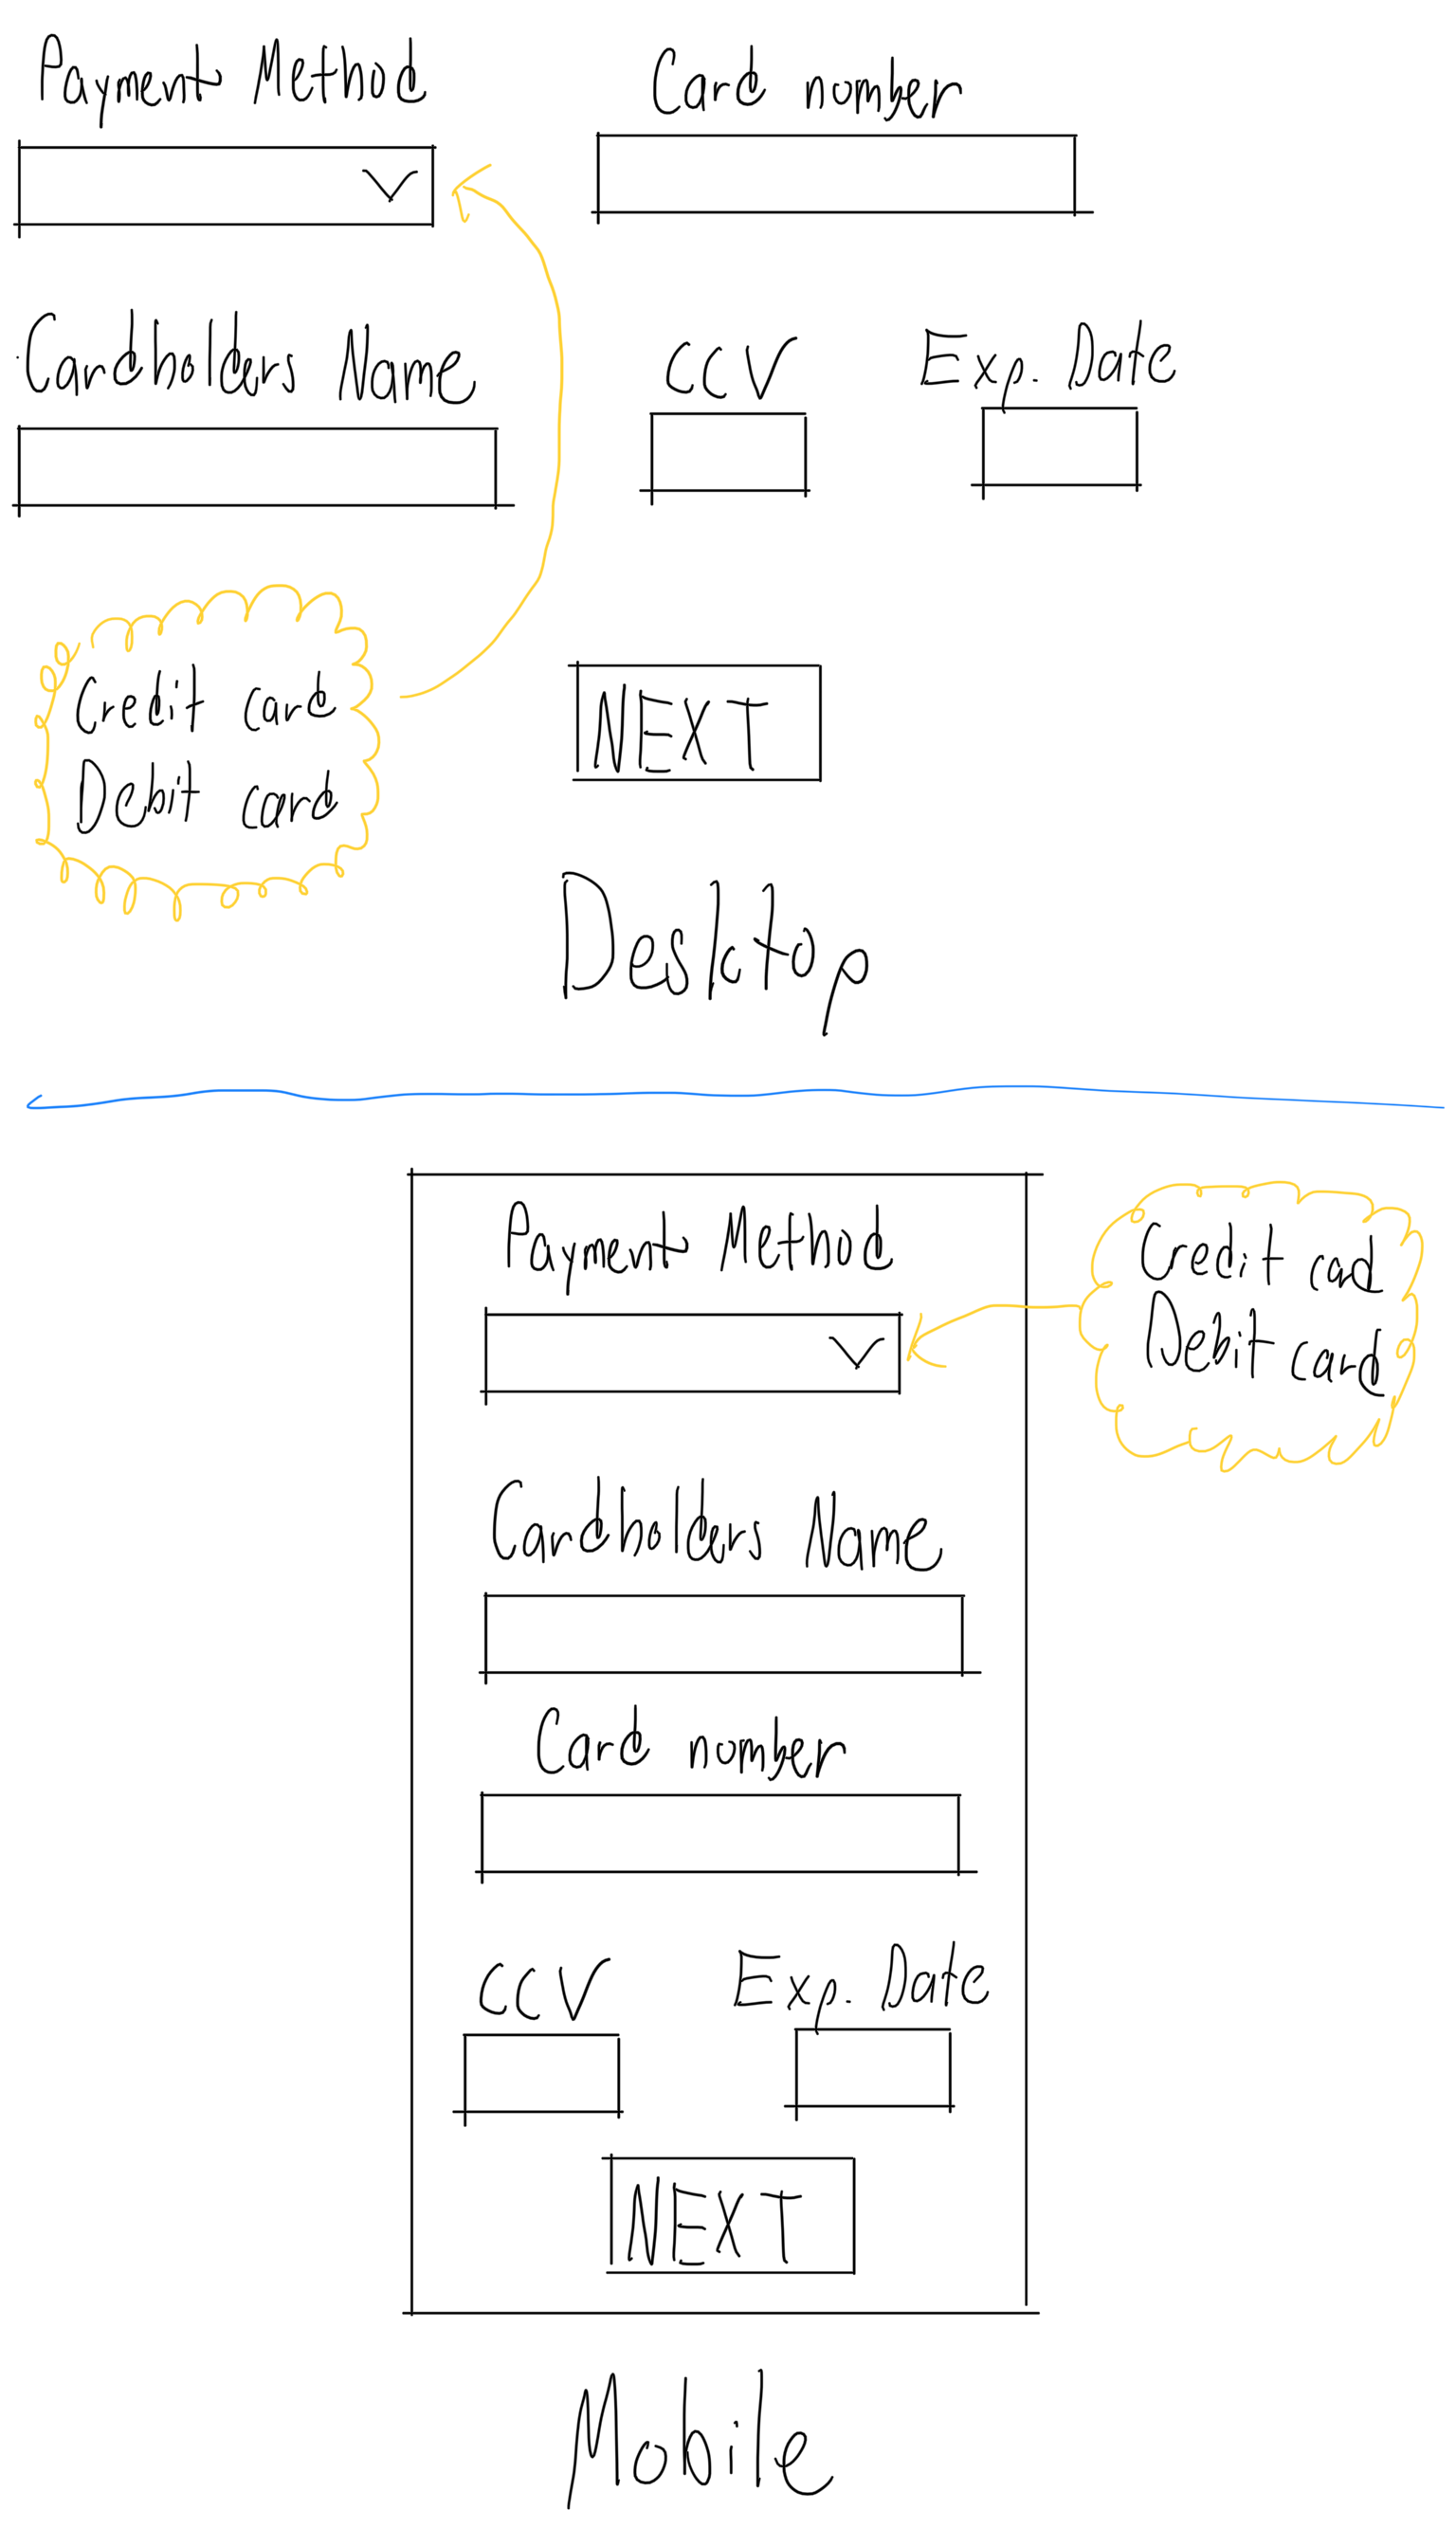 Payment Method
Card number
Cardholders Name
CCV
Exp. Date
Credit card
Debit card
NEXT
Desktop
Payment Method
Credit cad
Debit card
Cardholders Name
Card number
CCV
Exp. Date
NEXT
Mobile